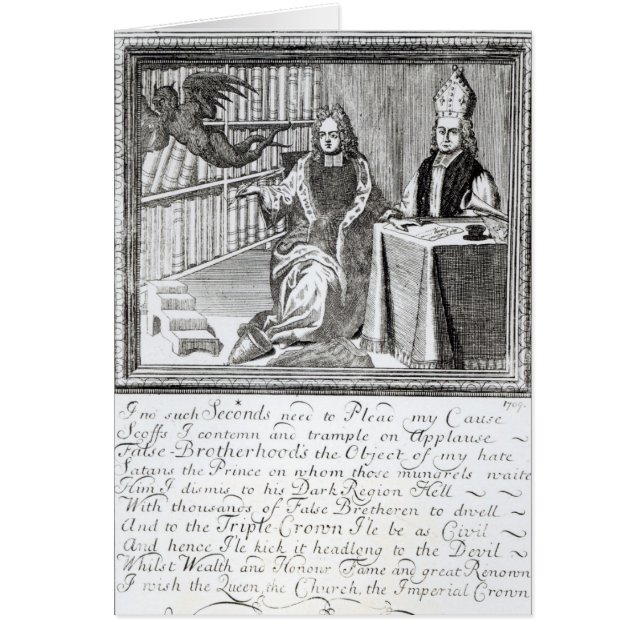 1709.
I no such Seconds * need to Plead my Cause
Scoffs I contemn and trample on Applause ~
False-Brotherhood's the Object of my hate
Satans the Prince on whom those mungrels waite
Him I dismis to his Dark Region Hell ~ ~
With thousands of False Bretheren to dwell ~
And to the Triple-Crown I'le be as Civil ~
And hence I'le kick it headlong to the Devil ~
Whilst Wealth and Honour Fame and great Renown
I wish the Queen, the Church, the Imperial Crown